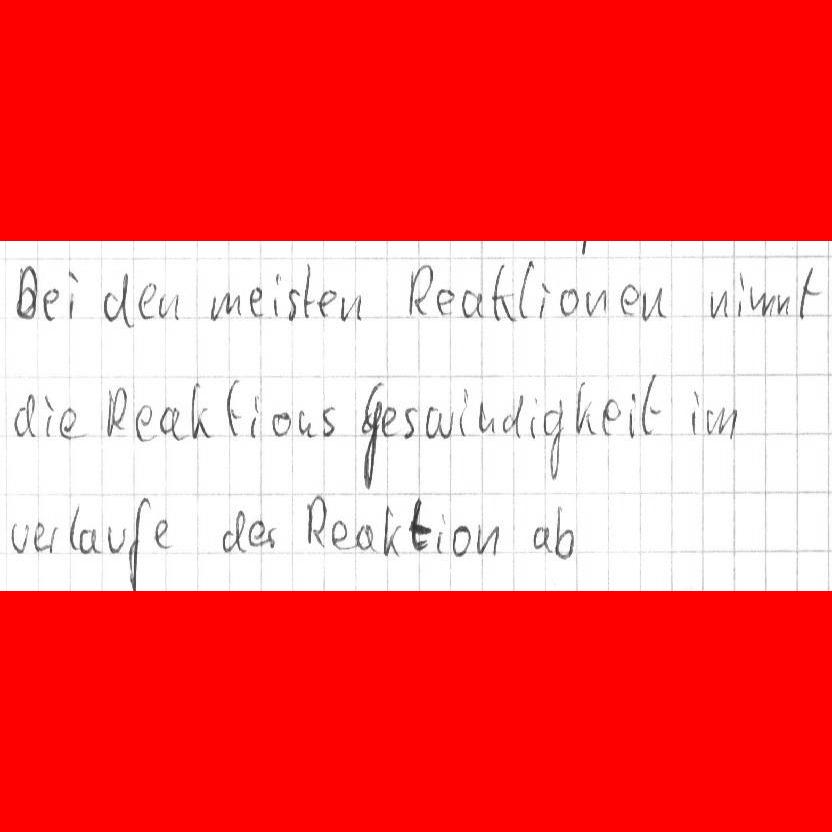 Bei den meisten Reaktionen nimmt
die Reaktions geswindigkeit im
verlaufe der Reaktion ab